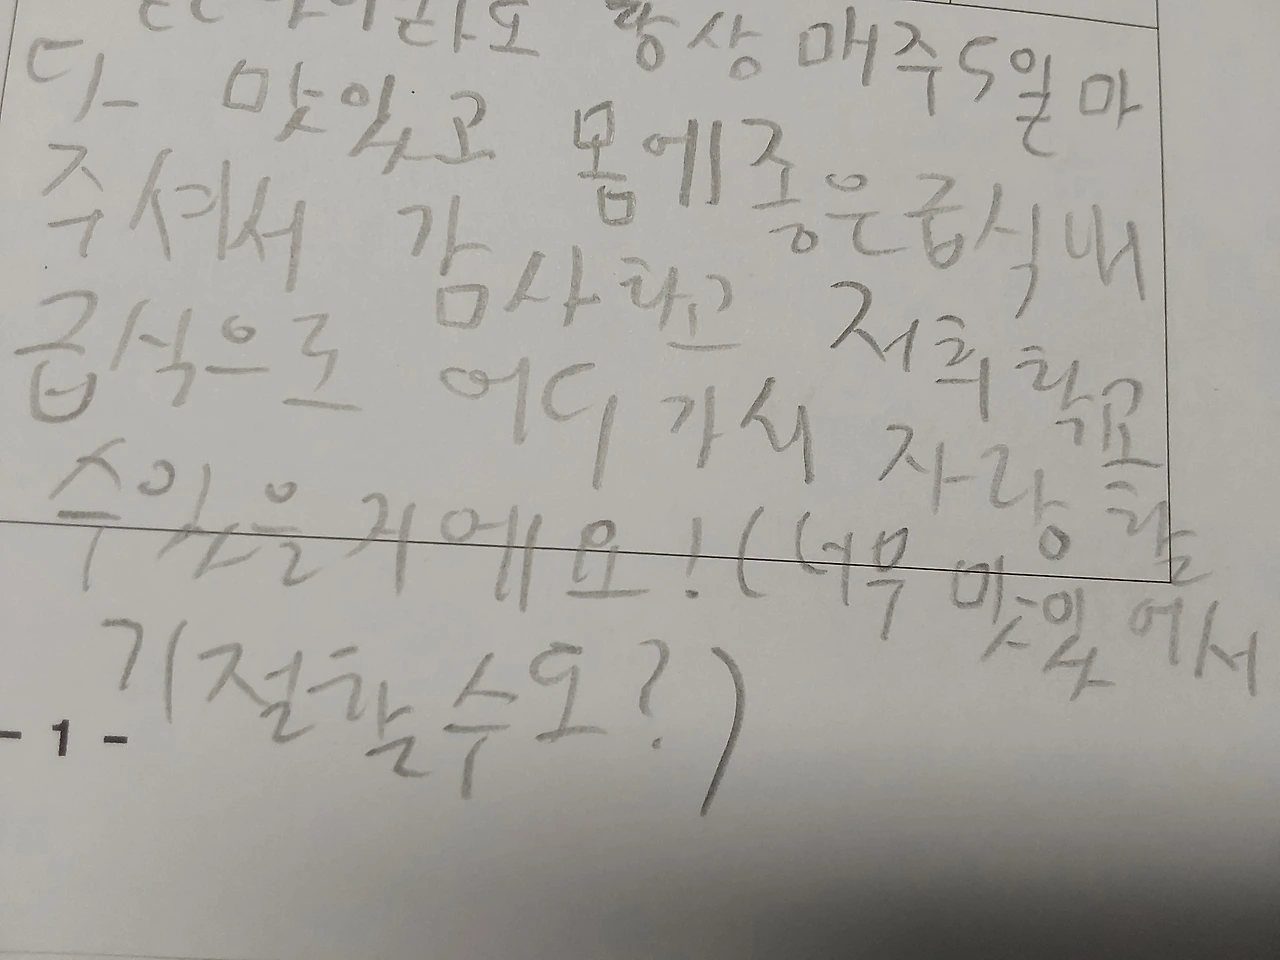 항상 매주 5일마
다 맛있고 몸에 좋은 급식 내
주셔서 감사하고 저희 학교
급식으로 어디 가서 자랑할
수 있을 거에요! (너무 맛있에서
기절할 수도?)
- 1 -